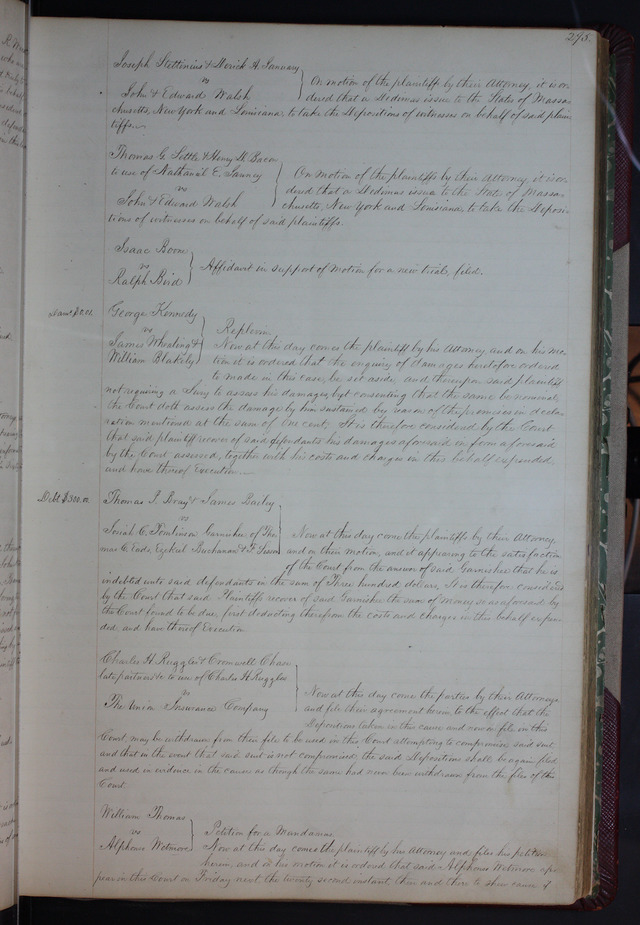 275.
Joseph Stettinius & Derick A. January
vs
John & Edward Walsh
On motion of the plaintiffs by their Attorney, it is or-
dered that a Dedimus issue to the States of Massa-
chusetts, New York and Louisiana, to take the Depositions of witnesses on behalf of said plain-
tiffs.
Thomas G. Settle & Henry D. Bacon
to use of Nathaniel E. Janney
vs
John & Edward Walsh
On motion of the plaintiffs by their Attorney, it is or-
dered that a Dedimus issue to the States of Massa-
chusetts, New York and Louisiana, to take the Deposi-
tions of witnesses on behalf of said plaintiffs.
Isaac Boon
vs
Ralph Bird
Affidavit in support of Motion for a new trial, filed.
Dam. $0.01.
George Kennedy
vs
James Whealing &
William Blakely
Replevin
Now at this day comes the plaintiff by his Attorney and on his mo-
tion it is ordered that the enquiry of damages heretofore ordered
to made in this case, be set aside, and thereupon said plaintiff
not requiring a Jury to assess his damages, but consenting that the same be nominal,
the Court doth assess the damage by him sustained by reason of the premises in decla-
ration mentioned at the sum of One cent. It is therefore considered by the Court
that said plaintiff recover of said defendants his damages aforesaid in form aforesaid
by the Court assessed, together with his costs and charges in this behalf expended,
and have thereof Execution.
Debt $300.00
Thomas J. Bray & James Bailey
vs
Josiah C. Tomlinson Garnishee of Tho-
mas C. Eads, Ezekiel Buchanan &
Now at this day come the plaintiffs by their Attorney,
and on their motion, and it appearing to the satisfaction
of the Court from the answer of said Garnishee that he is
indebted unto said defendants in the sum of Three hundred dollars, It is therefore considered
by the Court that said Plaintiffs recover of said Garnishee the sum of money so as aforesaid by
the Court found to be due, first deducting therefrom the costs and charges in this behalf expen-
ded, and have thereof Execution
Charles H. Ruggles & Cromwell Chase
late partners &c to use of Charles H. Ruggles
vs
The Union Insurance Company
Now at this day come the parties by their Attorneys
and file their agreement herein to the effect that the
Depositions taken in this cause and now on file in this
Court may be withdrawn from their file to be used in this Court attempting to compromise said suit
and that in the event that said suit is not compromised, the said Depositions shall be again filed
and used in evidence in the cause as though the same had never been withdrawn from the files of this
Court.
William Thomas
vs
Alphonso Wetmore
Petition for a Mandamus
Now at this day comes the plaintiff by his Attorney and files his petition
herein, and on his motion it is ordered that said Alphonso Wetmore ap-
pear in this Court on Friday next the twenty second instant, then and there to shew cause if